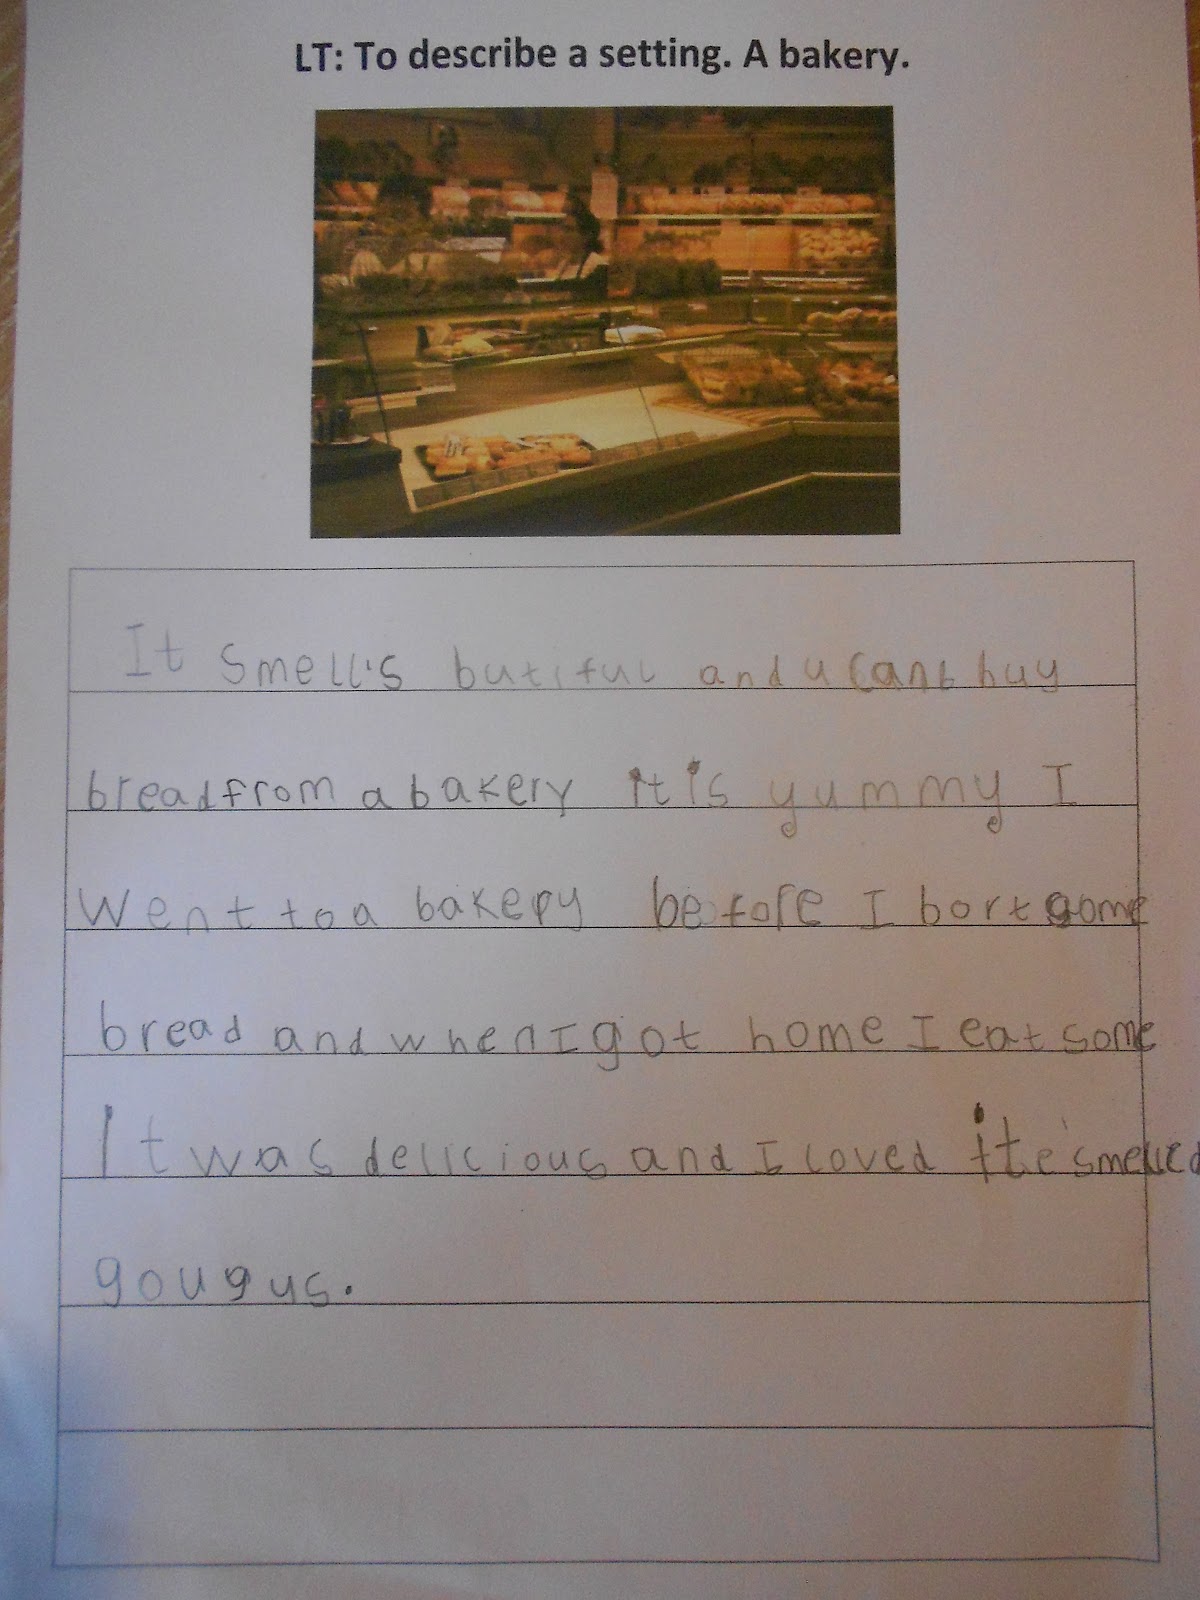 LT: To describe a setting. A bakery.
It smell's butiful and u cant buy
bread from a bakery it is yummy I
went to a bakery before I bort some
bread and when I got home I eat some
It was delicious and I loved it e'smelled
gougus.